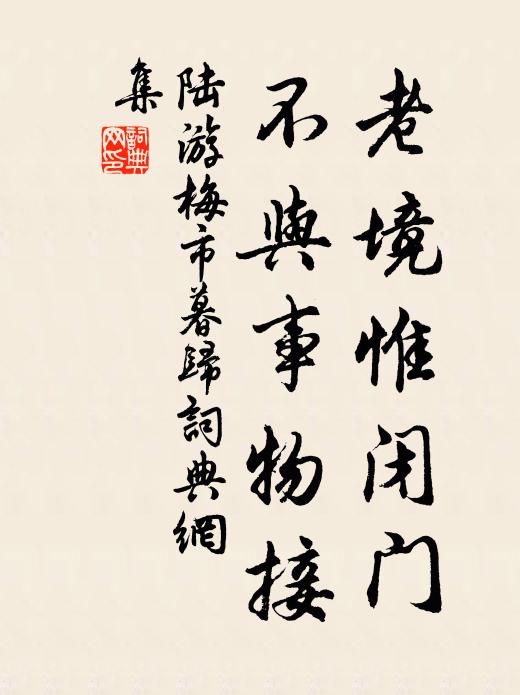 老境惟闭门
不與事物接
陆游梅市暮歸詞典網
集
詞典
网印